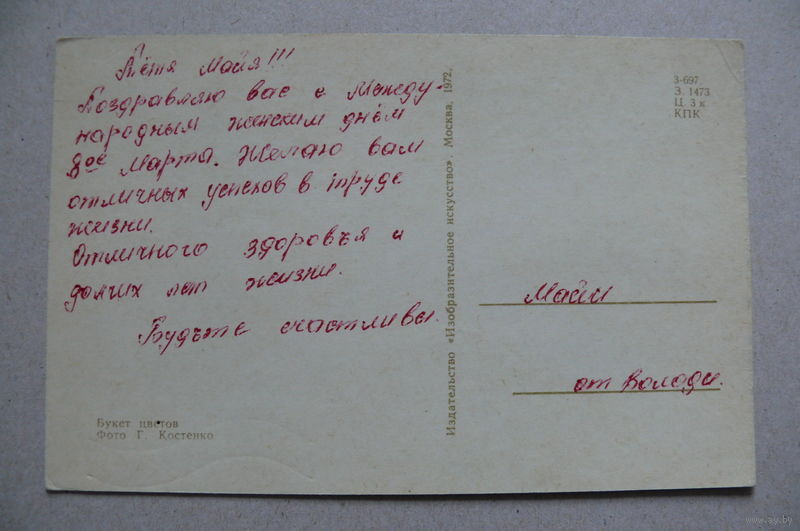 Тётя Майя!!!
Поздравляю вас с Между-
народным женским днём
8ое Марта. Желаю вам
отличных успехов в труде
жизни.
Отличного здоровъя и
долгих лет жизни.
Будьте счастливы.
Букет цветов
Фото Г. Костенко
Издательство «Изобразительное искусство». Москва. 1972.
3-697
З. 1473
Ц. 3 к
КПК
Майи
от Володи.
www.ay.by